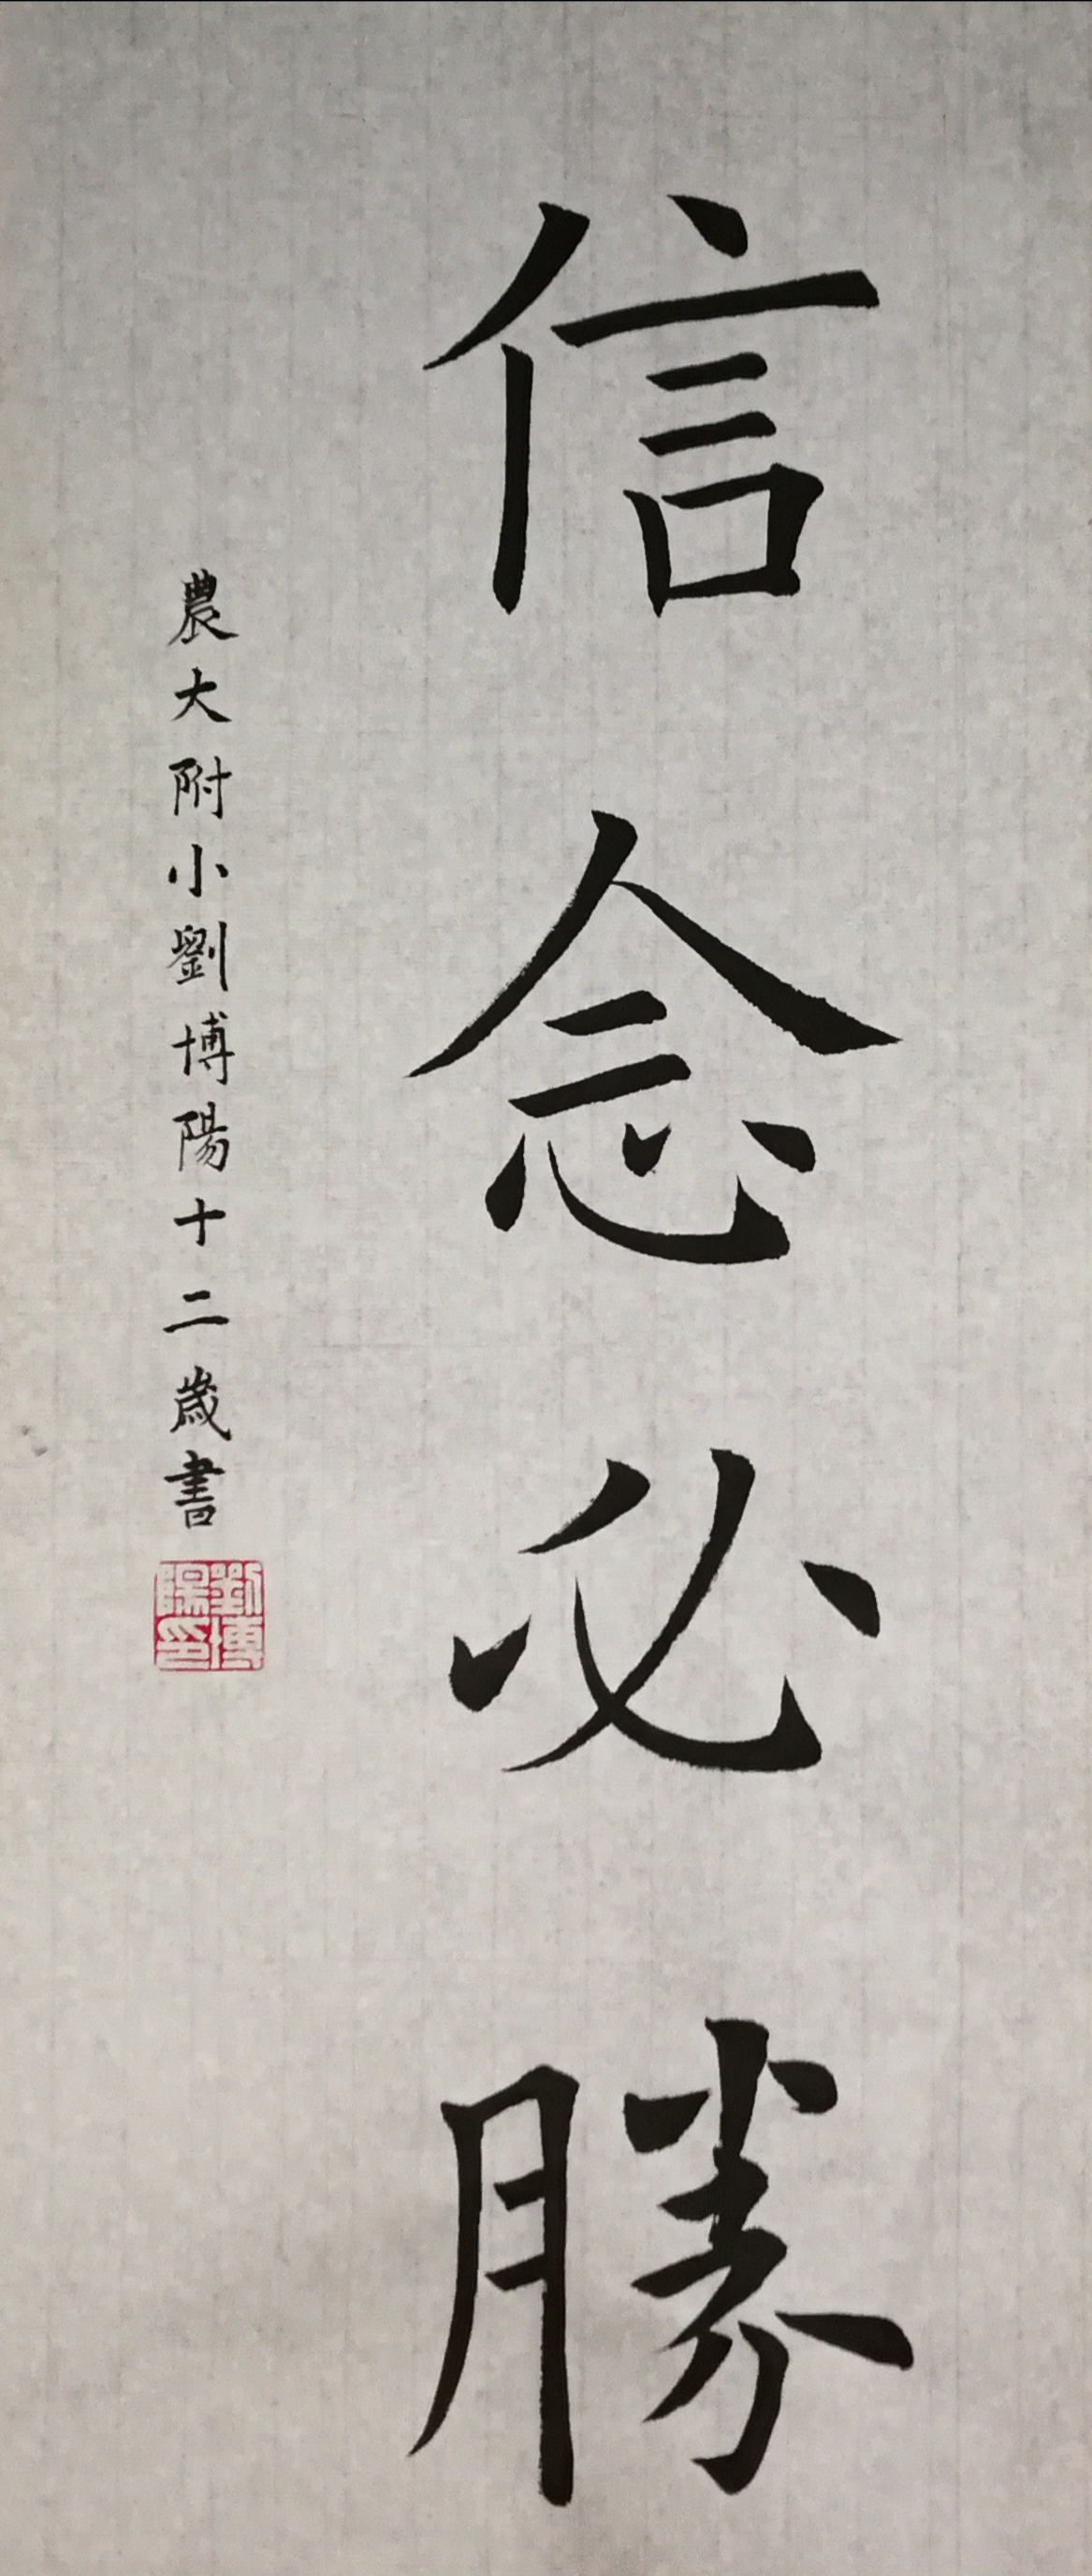 信念必勝
農大附小劉博陽十二歲書
劉博陽印